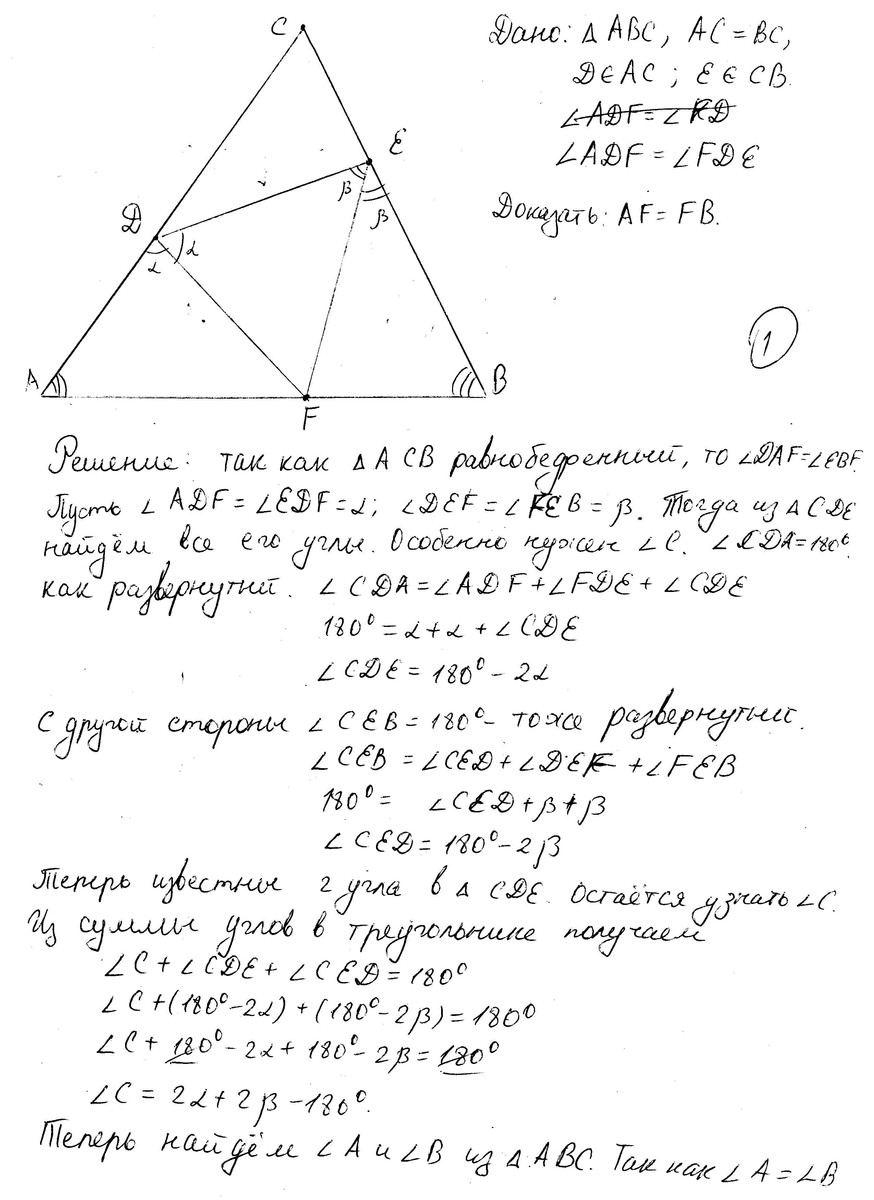 C
Дано: △ABC, AC = BC,
D∈AC; E∈CB.
∠ADF = ∠FDE
Доказать: AF = FB.
E
β
β
D
α
α
1
A
B
F
Решение: так как △ACB равнобедренный, то ∠DAF=∠EBF.
Пусть ∠ADF = ∠EDF = α; ∠DEF = ∠FEB = β. Тогда из △CDE
найдём все его углы. Особенно нужен ∠C. ∠CDA = 180°.
как развернутый. ∠CDA = ∠ADF + ∠FDE + ∠CDE
180° = α + α + ∠CDE
∠CDE = 180° - 2α
С другой стороны ∠CEB = 180° - тоже развернутый.
∠CEB = ∠CED + ∠DEF + ∠FEB
180° = ∠CED + β + β
∠CED = 180° - 2β
Теперь известны 2 угла в △CDE. Остаётся узнать ∠C.
Из суммы углов в треугольнике получаем
∠C + ∠CDE + ∠CED = 180°
∠C + (180° - 2α) + (180° - 2β) = 180°
∠C + 180° - 2α + 180° - 2β = 180°
∠C = 2α + 2β - 180°.
Теперь найдём ∠A и ∠B из △ABC. Так как ∠A = ∠B